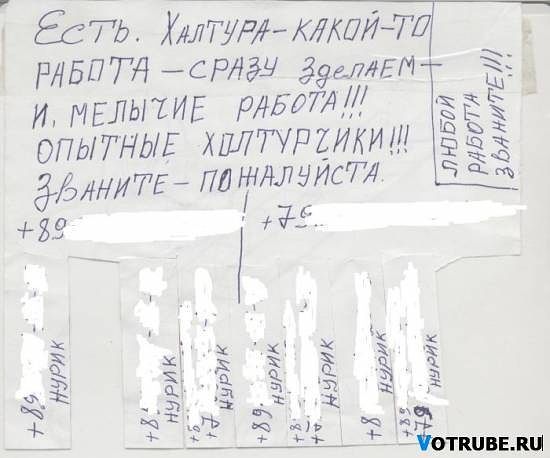 ЕСТЬ. ХАЛТУРА-КАКОЙ-ТО
РАБОТА-СРАЗУ ЗДЕЛАЕМ-
И, МЕЛЫЧИЕ РАБОТА!!!
ОПЫТНЫЕ ХОЛТУРЧИКИ!!!
ЗВАНИТЕ-ПОЖАЛУЙСТА.
ЛЮБОЙ
РАБОТА
ЗВАНИТЕ!!!
+89
+79
+89
НУРИК
+89
НУРИК
+8
+7
НУРИК
+89
НУРИК
+8
+7
НУРИК
+8
НУРИК
+89
+79
НУРИК
VOTRUBE.RU